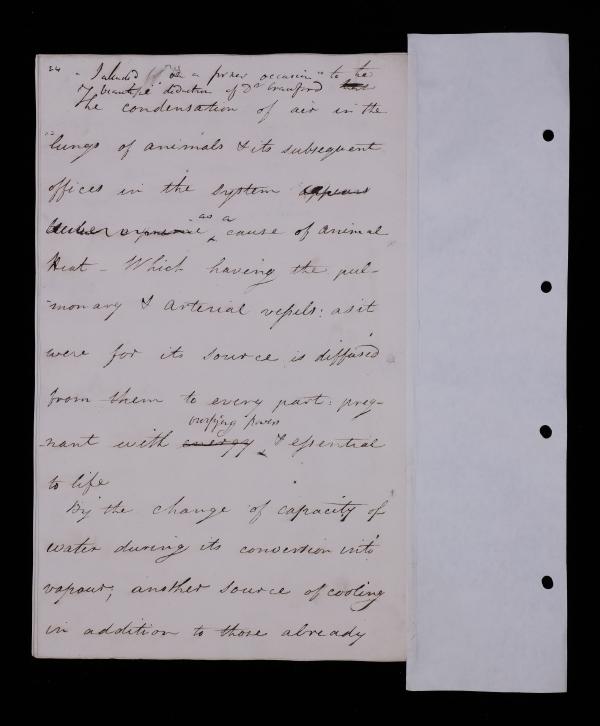 24
"I alluded on a former occasion" to the
beautiful deduction of Dr Crawford that
The condensation of air in the
lungs of animals & its subsequent
offices in the system appears
as a
cause of animal
Heat - Which having the pul-
-monary & arterial vessels: as it
were for its source is diffused
from them to every part: preg-
vivifying powers
-nant with energy & essential
to life
By the change of capacity of
water during its conversion into
vapour; another source of cooling
in addition to those already